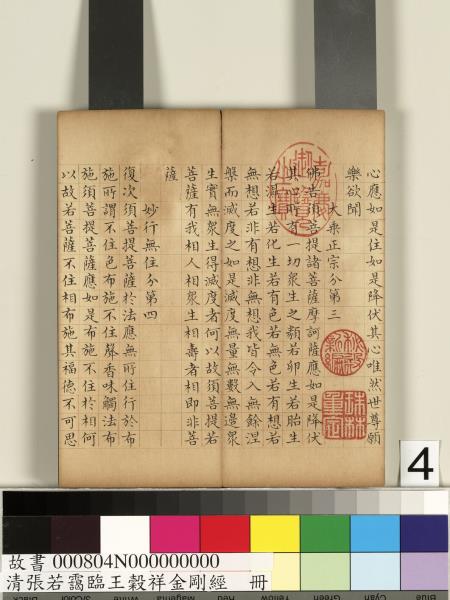 心應如是住如是降伏其心唯然世尊願
樂欲聞
大乘正宗分第三
佛告須菩提諸菩薩摩訶薩應如是降伏
其心所有一切眾生之類若卵生若胎生
若濕生若化生若有色若無色若有想若
無想若非有想非無想我皆令入無餘涅
槃而滅度之如是滅度無量無數無邊眾
生實無眾生得滅度者何以故須菩提若
菩薩有我相人相眾生相壽者相即非菩
薩
妙行無住分第四
復次須菩提菩薩於法應無所住行於布
施所謂不住色布施不住聲香味觸法布
施須菩提菩薩應如是布施不住於相何
以故若菩薩不住相布施其福德不可思
嘉慶御覽之寶
秘殿新編
珠林重定
4
故書 000804N000000000
清張若靄臨王穀祥金剛經 冊
Black
3/Color
White
Magenta
Red
Yellow
Green
Cyan
Blue